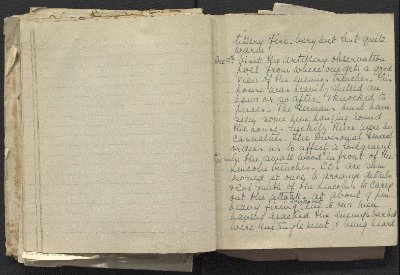 tillery fire. Very wet but quite
warm.
Dec 9th Visit the Artillery observation
post from where one gets a good
view of the enemies trenches; this
house was heavily shelled an
hour or so after & knocked to
pieces. The Germans must have
seen some men hanging round
the house. Luckily there were no
casualties. The Divisional General
orders us to effect a lodgment
in the small wood in front of the
Lincolns trenches. COs are
at once to arrange details
& Col of the Lincolns to carry
out the attack at about 9 pm
heavy firing but to our
having reached the enemys barbed
wire & being heard